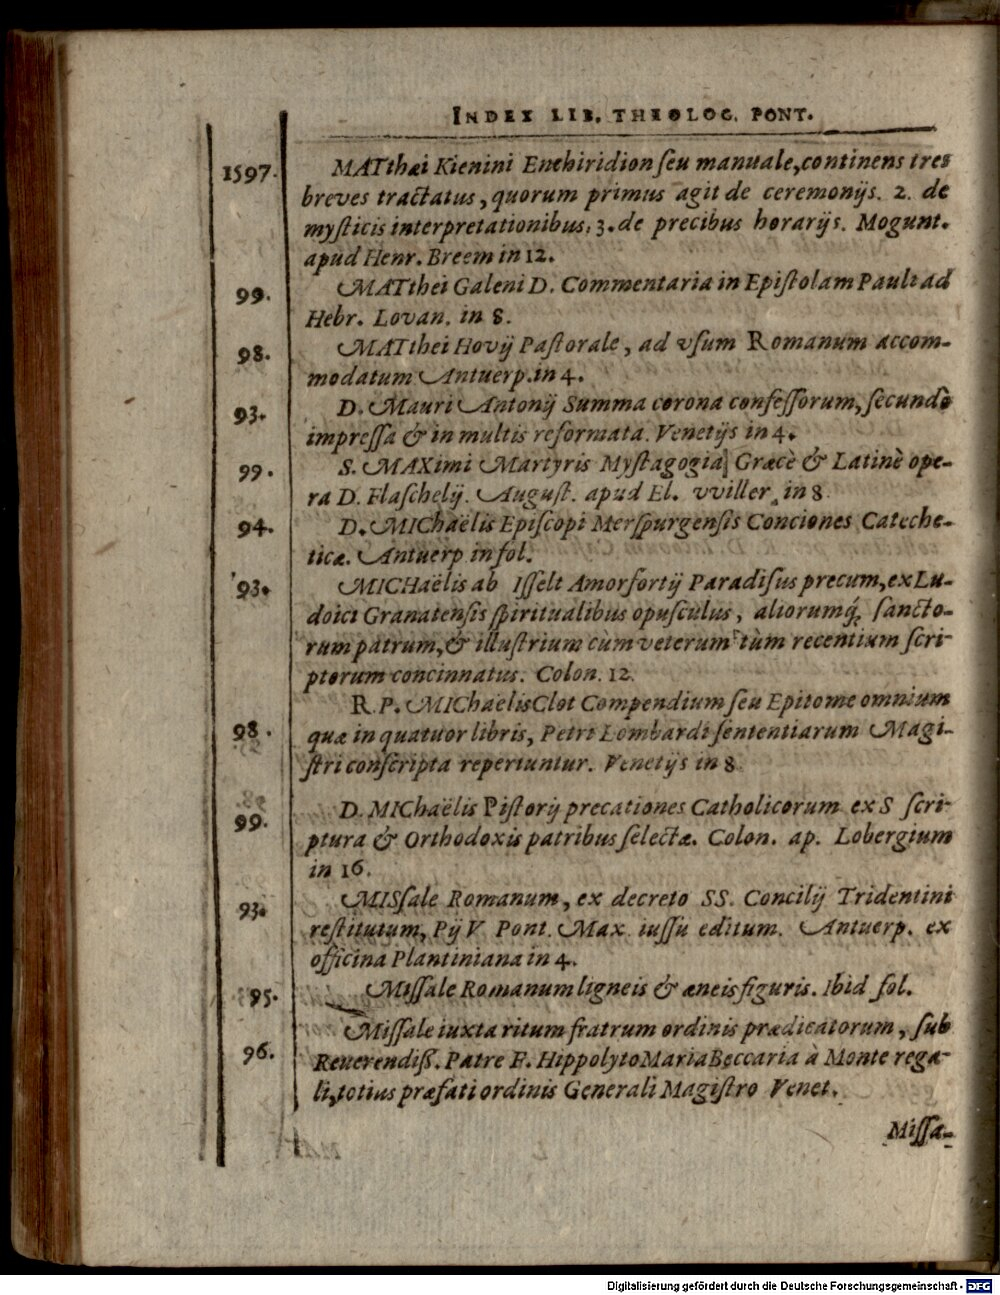 INDEX LIB. THEOLOG. PONT.
1597. MATthæi Kienini Enchiridion ſeu manuale, continens tres
breves tractatus, quorum primus agit de ceremonijs. 2. de
myſticis interpretationibus, 3. de precibus horarijs. Mogunt.
apud Henr. Breem in 12.
99. MATthei Galeni D. Commentaria in Epiſtolam Pauli ad
Hebr. Lovan. in 8.
98. MATthei Hovij Paſtorale, ad vſum Romanum accom-
modatum Antuerp. in 4.
93. D. Mauri Antonij Summa corona confeſſorum, ſecundò
impreſſa & in multis reformata. Venetijs in 4.
99. S. MAXimi Martyris Myſtagogia Græcè & Latinè ope-
ra D. Hæſchelij. Auguſt. apud El. vviller, in 8.
94. D. MIChaëlis Epiſcopi Merſpurgenſis Conciones Cateche-
ticæ. Antuerp in fol.
93. MICHaëlis ab Iſſelt Amorfortij Paradiſus precum, ex Lu-
doici Granatenſis ſpiritualibus opuſculus, aliorumq́; ſancto-
rum patrum, & illuſtrium cùm veterum tùm recentium ſcri-
ptorum concinnatus. Colon. 12.
R. P. MIChaëlis Clot Compendium ſeu Epitome omnium
98. quæ in quatuor libris, Petri Lombardi ſententiarum Magi-
ſtri conſcripta reperiuntur. Venetijs in 8
99. D. MIChaëlis Piſtorij precationes Catholicorum ex S ſcri-
ptura & Orthodoxis patribus ſelectæ. Colon. ap. Lobergium
in 16.
93. MISſale Romanum, ex decreto SS. Concilij Tridentini
reſtitutum, Pij V Pont. Max iuſſu editum. Antuerp. ex
officina Plantiniana in 4.
95. Miſſale Romanum ligneis & æneis figuris. Ibid fol.
Miſſale iuxta ritum fratrum ordinis prædicatorum, ſub
96. Reuerendiß. Patre F. Hippolyto Maria Beccaria à Monte rega-
li, totius præfati ordinis Generali Magiſtro Venet.
Miſſa-
Digitalisierung gefördert durch die Deutsche Forschungsgemeinschaft - DFG